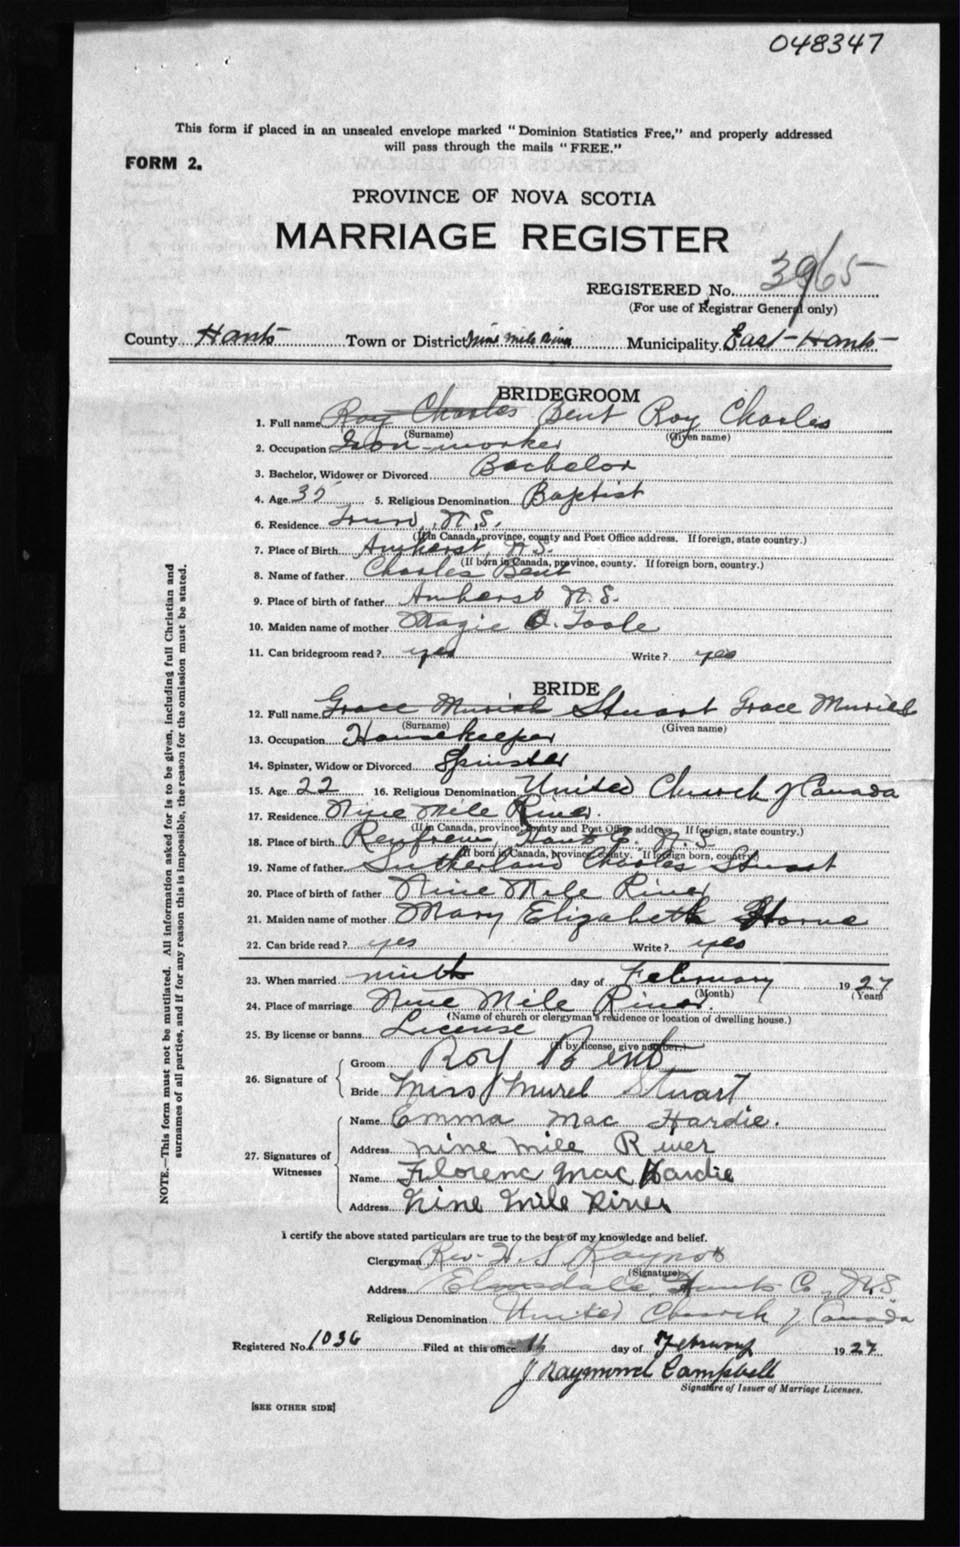 048347
This form if placed in an unsealed envelope marked "Dominion Statistics Free," and properly addressed
will pass through the mails "FREE."
FORM 2.
PROVINCE OF NOVA SCOTIA
MARRIAGE REGISTER
REGISTERED No. 3965
(For use of Registrar General only)
County Hants Town or District Nine Mile River Municipality East-Hants
BRIDEGROOM
1. Full name Roy Charles Bent Roy Charles
(Surname) (Given name)
2. Occupation Iron-worker
3. Bachelor, Widower or Divorced Bachelor
4. Age 35 5. Religious Denomination Baptist
6. Residence Truro, N.S.
(If in Canada, province, county and Post Office address. If foreign, state country.)
7. Place of Birth Amherst, N.S.
(If born in Canada, province, county. If foreign born, country.)
8. Name of father Charles Bent
9. Place of birth of father Amherst N.S.
10. Maiden name of mother Magie O. Toole
11. Can bridegroom read? yes Write? yes
BRIDE
12. Full name Grace Muriel Stuart Grace Muriel
(Surname) (Given name)
13. Occupation Housekeeper
14. Spinster, Widow or Divorced Spinster
15. Age 22 16. Religious Denomination United Church of Canada
17. Residence Nine Mile River.
(If in Canada, province, county and Post Office address. If foreign, state country.)
18. Place of birth Renfrew, Hants Co. N.S.
(If born in Canada, province, county. If foreign born, country)
19. Name of father Sutherland Charles Stuart
20. Place of birth of father Nine Mile River
21. Maiden name of mother Mary Elizabeth Horne
22. Can bride read? yes Write? yes
23. When married ninth day of February 1927
(Month) (Year)
24. Place of marriage Nine Mile River.
(Name of church or clergyman's residence or location of dwelling house.)
25. By license or banns License
(If by license, give number.)
26. Signature of
Groom Roy Bent
Bride Miss Murel Stuart
27. Signatures of Witnesses
Name Emma Mac Hardie.
Address Nine Mile River
Name Florenc Mac Hardie
Address Nine Mile River
I certify the above stated particulars are true to the best of my knowledge and belief.
Clergyman Rev. H. S.
(Signature)
Address Elmsdale, Hants Co., N.S.
Religious Denomination United Church of Canada
Registered No. 1036 Filed at this office day of February 1927
J Raymond Campbell
Signature of Issuer of Marriage Licenses.
[SEE OTHER SIDE]
NOTE.—This form must not be mutilated. All information asked for is to be given, including full Christian and
surnames of all parties, and if for any reason this is impossible, the reason for the omission must be stated.